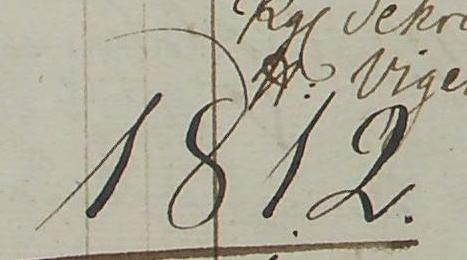 Kgl Sekr
H: Vige
1812.